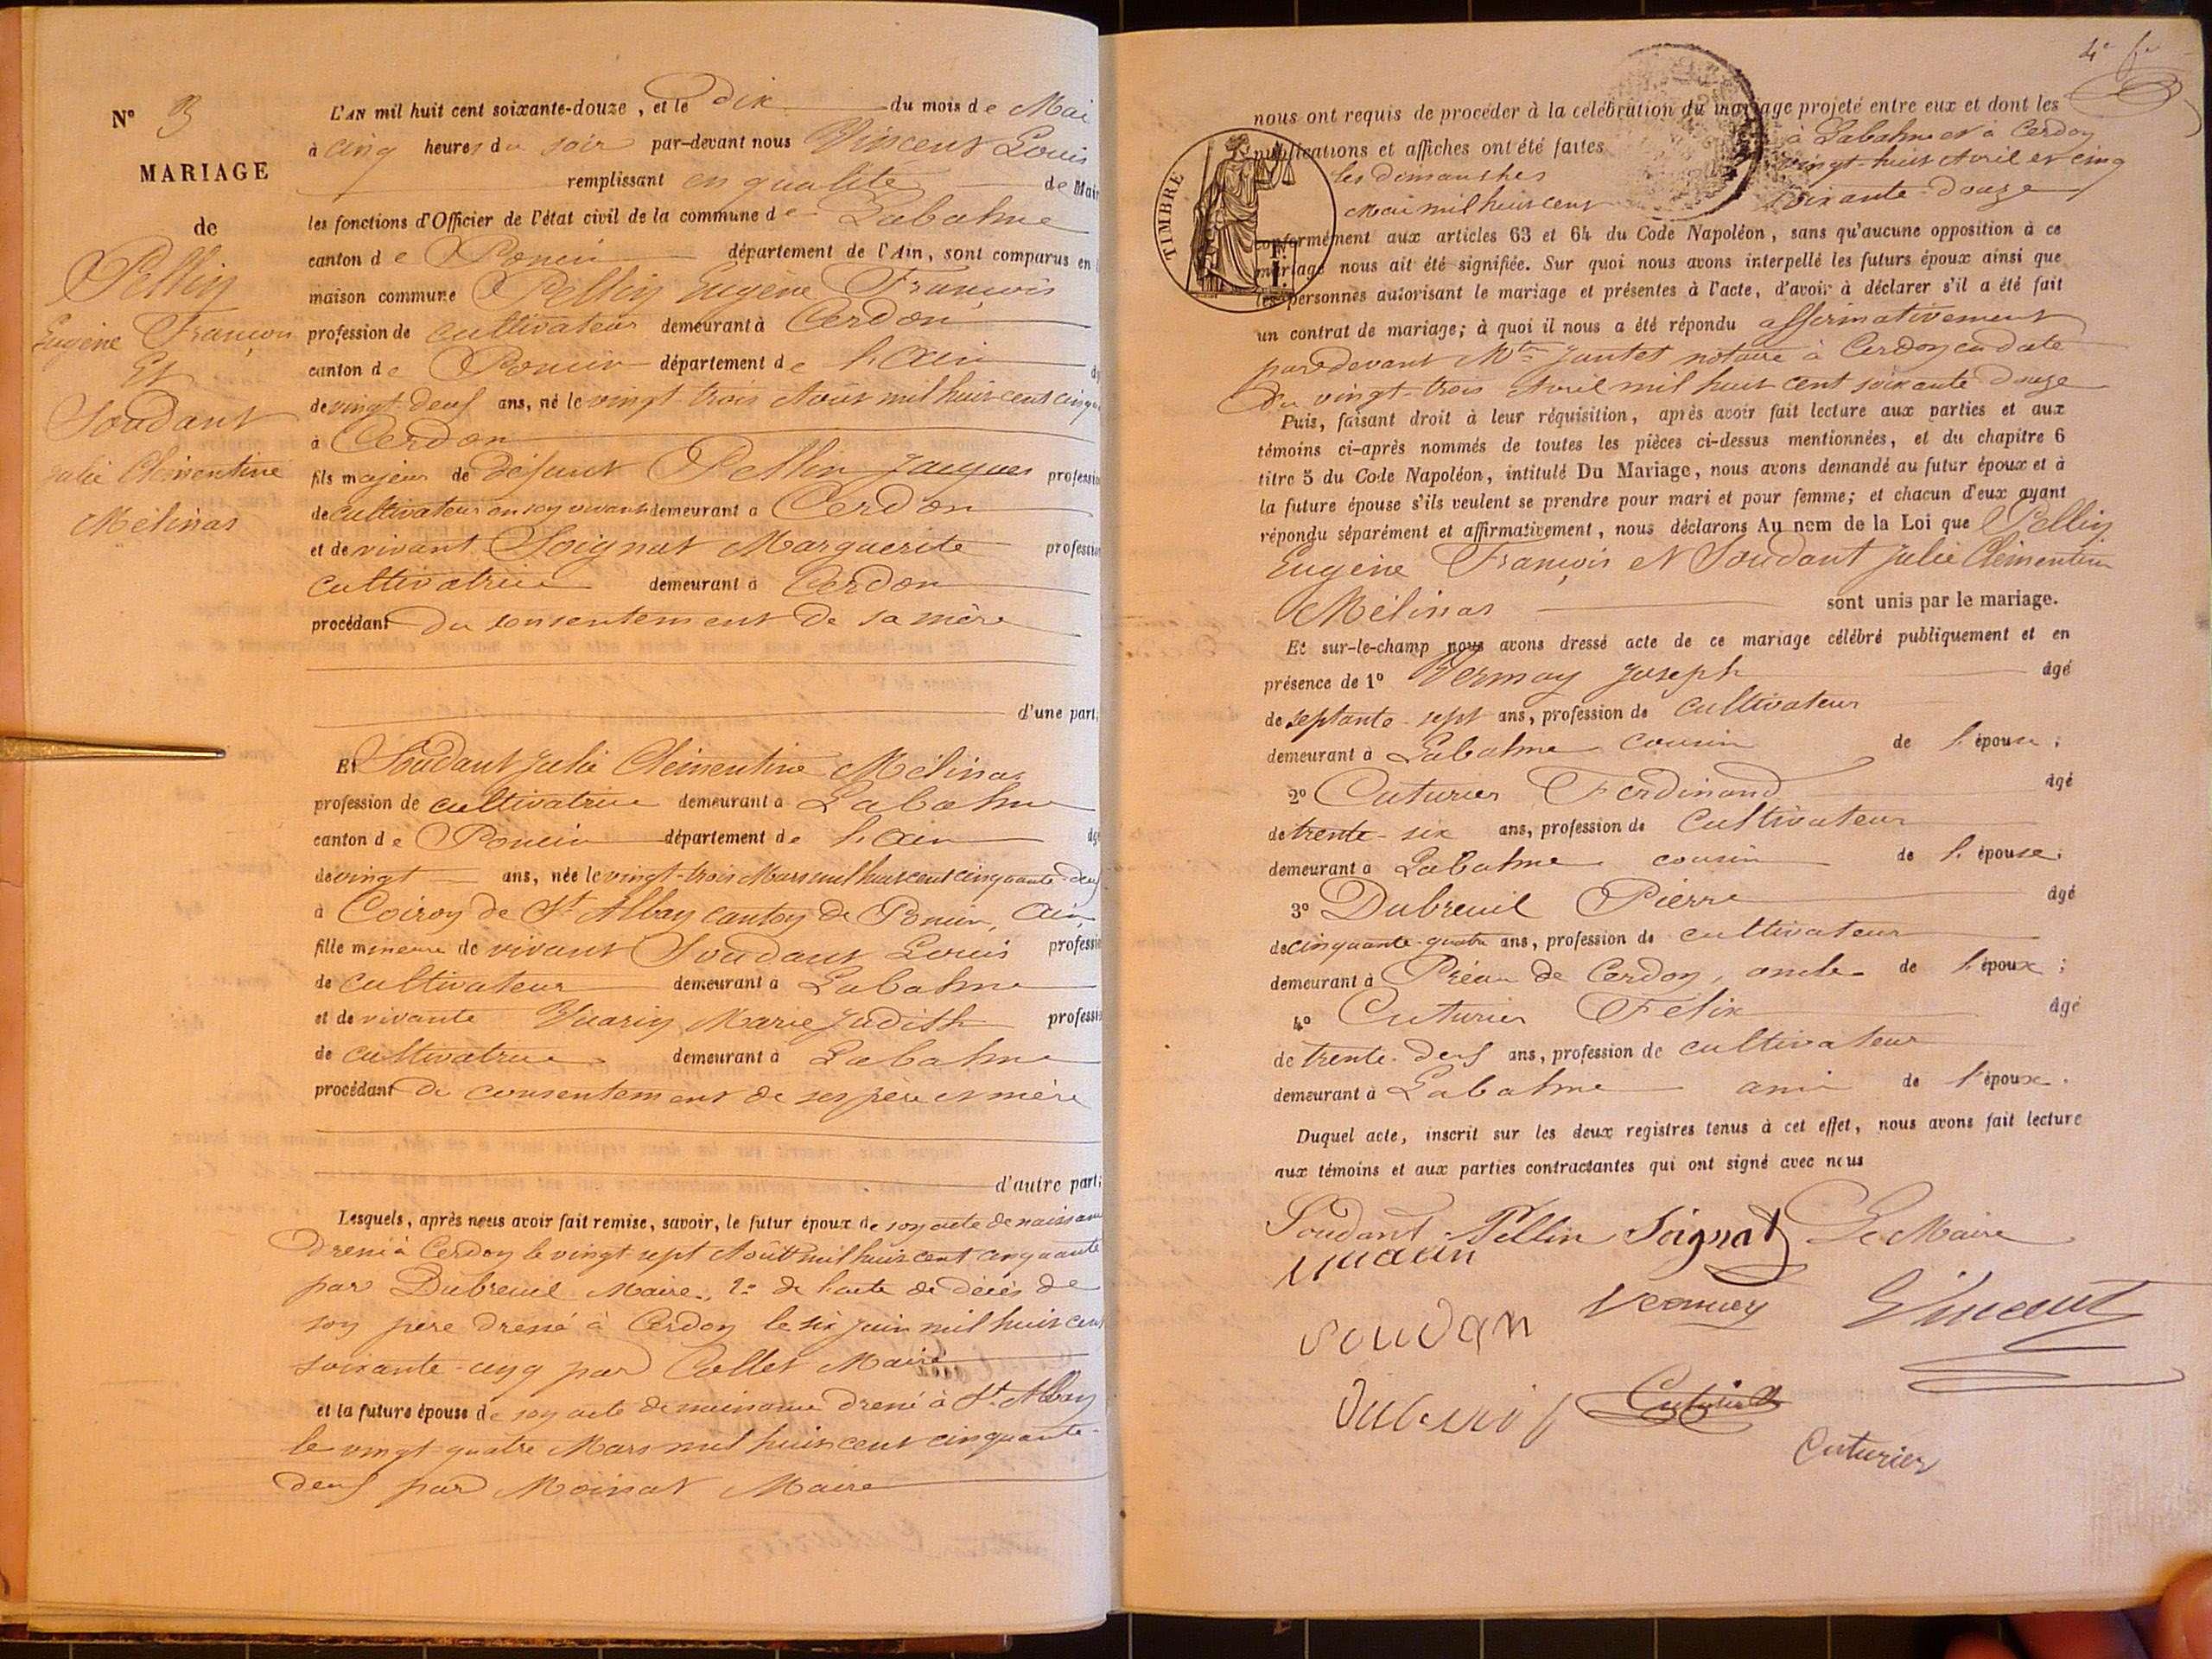 N° 3
MARIAGE
de
Pellin
Eugène François
Et
Soudant
Julie Clémentine
Mélinas
L'AN mil huit cent soixante-douze, et le dix du mois de Mai
à cinq heures du soir par-devant nous Vincent Louis
remplissant en qualité de Mair
les fonctions d'Officier de l'état civil de la commune de Labalme
canton de Poncin département de l'Ain, sont comparus en
maison commune Pellin Eugène François
profession de cultivateur demeurant à Cerdon
canton de Poncin département de l'Ain
de vingt-deux ans, né le vingt-trois Août mil huit cent cinqu
à Cerdon
fils majeur de défunt Pellin Jacques professio
de cultivateur en son vivant demeurant à Cerdon
et de vivant Soignat Marguerite professio
cultivatrice demeurant à Cerdon
procédant du consentement de sa mère
d'une part;
Et Soudant Julie Clémentine Mélinas
profession de cultivatrice demeurant à Labalme
canton de Poncin département de l'Ain
de vingt ans, née le vingt-trois Mars mil huit cent cinquante-deux
à Coiron de St Alban canton de Poncin, Ain
fille mineure de vivant Soudant Louis professio
de cultivateur demeurant à Labalme
et de vivante Vuarin Marie Judith professio
de cultivatrice demeurant à Labalme
procédant de consentement de ses père et mère
d'autre part;
Lesquels, après nous avoir fait remise, savoir, le futur époux de son acte de naissance
dressé à Cerdon le vingt sept Août mil huit cent cinquante
par Dubreuil Maire, 2° de l'acte de décès de
son père dressé à Cerdon le six juin mil huit cent
soixante-cinq par Collet Maire
et la future épouse de son acte de naissance dressé à St Alban
le vingt-quatre Mars mil huit cent cinquante-
deux par Moinat Maire
4e fe
nous ont requis de procéder à la célébration du mariage projeté entre eux et dont les
publications et affiches ont été faites à Labalme et à Cerdon
les dimanches vingt-huit Avril et cinq
Mai mil huit cent soixante-douze
TIMBRE
conformément aux articles 63 et 64 du Code Napoléon, sans qu'aucune opposition à ce
mariage nous ait été signifiée. Sur quoi nous avons interpellé les futurs époux ainsi que
les personnes autorisant le mariage et présentes à l'acte, d'avoir à déclarer s'il a été fait
un contrat de mariage; à quoi il nous a été répondu affirmativement
par devant Mtre Jantet notaire à Cerdon en date
du vingt-trois Avril mil huit cent soixante douze
Puis, faisant droit à leur réquisition, après avoir fait lecture aux parties et aux
témoins ci-après nommés de toutes les pièces ci-dessus mentionnées, et du chapitre 6
titre 5 du Code Napoléon, intitulé Du Mariage, nous avons demandé au futur époux et à
la future épouse s'ils veulent se prendre pour mari et pour femme; et chacun d'eux ayant
répondu séparément et affirmativement, nous déclarons Au nom de la Loi que Pellin
Eugène François et Soudant Julie Clémentine
Mélinas sont unis par le mariage.
Et sur-le-champ nous avons dressé acte de ce mariage célébré publiquement et en
présence de 1° Vermay Joseph âgé
de septante-sept ans, profession de cultivateur
demeurant à Labalme cousin de l'épouse;
2° Cuturier Ferdinand âgé
de trente-six ans, profession de cultivateur
demeurant à Labalme cousin de l'épouse;
3° Dubreuil Pierre âgé
de cinquante-quatre ans, profession de cultivateur
demeurant à Préau de Cerdon, oncle de l'époux;
4° Cuturier Félix âgé
de trente-deux ans, profession de cultivateur
demeurant à Labalme ami de l'époux.
Duquel acte, inscrit sur les deux registres tenus à cet effet, nous avons fait lecture
aux témoins et aux parties contractantes qui ont signé avec nous
Soudant Pellin Soignat Le Maire
Vermey Vincent
Soudan
Cuturier
Cuturier